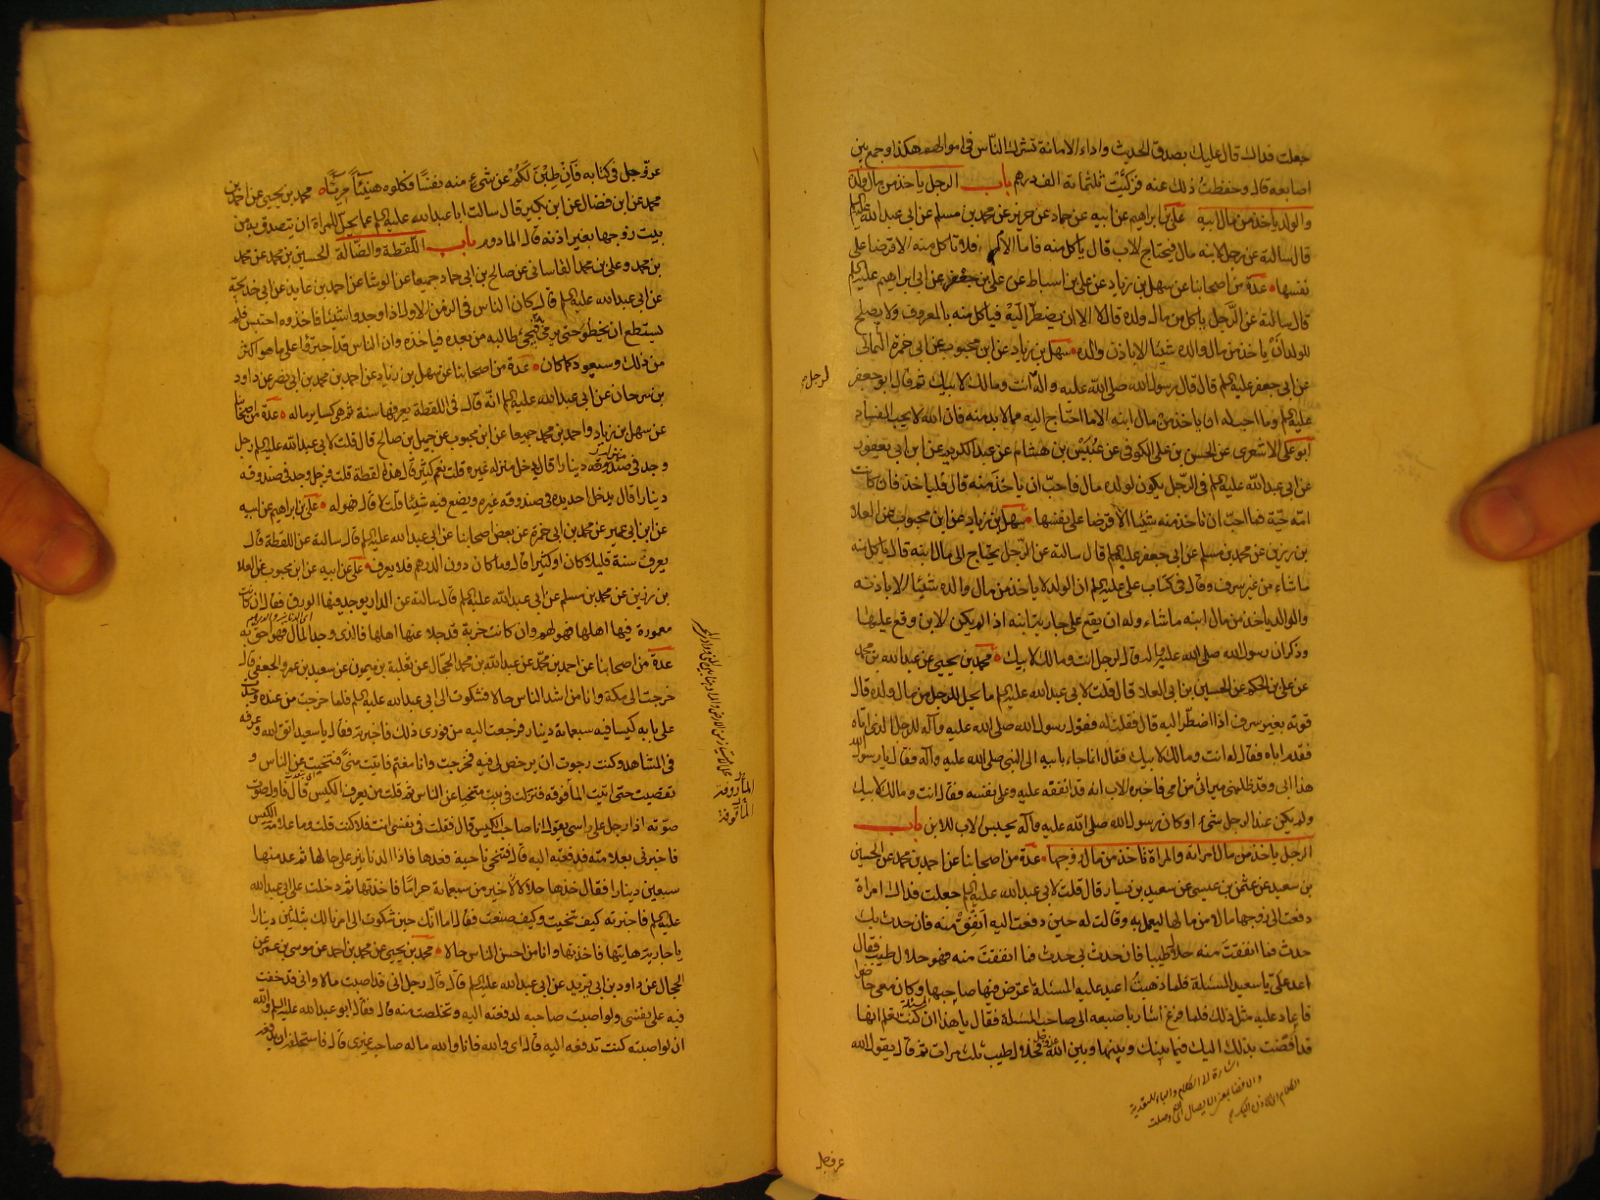 جعلت فداك قال عليك بصدق الحديث واداء الامانة تشرك الناس فى اموالهم هكذا وجمع بين
اصابعه قال وحفظت ذلك عنه فزكيت ثلثمائة الف درهم باب الرجل ياخذ من مال ولده
والولد ياخذ من مال ابيه على بن ابراهيم عن ابيه عن حماد عن حريز عن محمد بن مسلم عن ابى عبد الله عليه السلم
قال سالته عن رجل لابنه مال فيحتاج الاب قال ياكل منه فاما الام فلا تاكل منه الا قرضا على
نفسها عدة من اصحابنا عن سهل بن زياد عن على بن اسباط عن على بن جعفر عن ابى ابراهيم عليه السلم
قال سالته عن الرجل ياكل من مال ولده قال لا الا ان يضطر اليه فياكل منه بالمعروف ولا يصلح
للولد ان ياخذ من مال والده شيئا الا باذن والده سهل بن زياد عن ابن محبوب عن ابى حمزة الثمالى
عن ابى جعفر عليه السلم قال قال رسول الله صلى الله عليه وآله انت ومالك لابيك ثم قال ابو جعفر
لرجل
عليه السلم وما احب له ان ياخذ من مال ابنه الا ما احتاج اليه مما لا بد منه فان الله لا يحب الفساد
ابو على الاشعرى عن الحسن بن على الكوفى عن عبيس بن هشام عن عبد الكريم عن ابن ابى يعفور
عن ابى عبد الله عليه السلم فى الرجل يكون لولده مال فاحب ان ياخذ منه قال فلياخذ فان كانت
امه حية فما احب ان تاخذ منه شيئا الا قرضا على نفسها سهل بن زياد عن ابن محبوب عن العلا
بن رزين عن محمد بن مسلم عن ابى جعفر عليه السلم قال سالته عن الرجل يحتاج الى مال ابنه قال ياكل منه
ما شاء من غير سرف وقال فى كتاب على عليه السلم ان الولد لا ياخذ من مال والده شيئا الا باذنه
والوالد ياخذ من مال ابنه ما شاء وله ان يقع على جارية ابنه اذا لم يكن الابن وقع عليها
وذكر ان رسول الله صلى الله عليه وآله قال لرجل انت ومالك لابيك محمد بن يحيى عن عبد الله بن محمد
عن على بن الحكم عن الحسين بن ابى العلاء قال قلت لابى عبد الله عليه السلم ما يحل للرجل من مال ولده قال
قوته بغير سرف اذا اضطر اليه قال فقلت له فقول رسول الله صلى الله عليه وآله للرجل الذى اتاه
فقدم اباه فقال له انت ومالك لابيك فقال انما جاء بابيه الى النبى صلى الله عليه وآله فقال يا رسول الله
هذا ابى وقد ظلمنى ميراثى من امى فاخبره الاب انه قد انفقه عليه وعلى نفسه فقال انت ومالك لابيك
ولم يكن عند الرجل شىء او كان رسول الله صلى الله عليه وآله يحبس الاب للابن باب
الرجل ياخذ من مال امراته والمراة تاخذ من مال زوجها عدة من اصحابنا عن احمد بن محمد عن الحسين
بن سعيد عن عثمن بن عيسى عن سعيد بن يسار قال قلت لابى عبد الله عليه السلم جعلت فداك امراة
دفعت الى زوجها مالا من مالها ليعمل به وقالت له حين دفعت اليه انفق منه فان حدث بك
حدث فما انفقت منه حلالا طيبا فان حدث بى حدث فما انفقت منه فهو حلال طيب فقال
اعد على يا سعيد المسئلة فلما ذهبت اعيد عليه المسئلة عرض فيها صاحبها وكان معى حاضرا
فاعاد عليه مثل ذلك فلما فرغ اشار باصبعه الى صاحب المسئلة فقال يا هذا ان كنت تعلم انها
قد افضت بذلك اليك فيما بينك وبينها وبين الله عز وجل فحلال طيب ثلث مرات ثم قال يقول الله
اشارة الى الكلام والباء للتعدية
والافضا بمعنى الايصال اى وصلت
عز وجل
عز وجل فى كتابه فان طبن لكم عن شىء منه نفسا فكلوه هنيئا مريئا محمد بن يحيى عن احمد بن
محمد عن ابن فضال عن ابن بكير قال سالت ابا عبد الله عليه السلم عما يحل للمراة ان يتصدق به من
بيت زوجها بغير اذنه قال المادوم باب اللقطة والضالة الحسين بن محمد عن محمد
بن محمد وعلى بن محمد القاسانى عن صالح بن ابى حماد جميعا عن الوشا عن احمد بن عايد عن ابى خديجة
عن ابى عبد الله عليه السلم قال كان الناس فى الزمن الاول اذا وجدوا شيئا فاخذوه احتبس فلم
يستطع ان يخطو حتى يرمى به فيجىء طالبه من بعده فياخذه وان الناس قد اجترؤا على ما هو اكثر
من ذلك وسيعود كما كان عدة من اصحابنا عن سهل بن زياد عن احمد بن محمد بن ابى نصر عن داود
بن سرحان عن ابى عبد الله عليه السلم انه قال فى اللقطة يعرفها سنة ثم هى كساير ماله عدة من اصحابنا
عن سهل بن زياد واحمد بن محمد جميعا عن ابن محبوب عن جميل بن صالح قال قلت لابى عبد الله عليه السلم رجل
وجد فى صندوقه دينارا قال يدخل منزله غيره قلت نعم كثير قال هذا لقطة قلت فرجل وجد فى صندوقه
دينارا قال يدخل احد يده فى صندوقه غيره ويضع فيه شيئا قلت لا قال فهو له على بن ابراهيم عن ابيه
عن ابن ابى عمير عن محمد بن ابى حمزة عن بعض اصحابنا عن ابى عبد الله عليه السلم قال سالته عن اللقطة قال
يعرف سنة قليلا كان او كثيرا قال وما كان دون الدرهم فلا يعرف على عن ابيه عن ابن محبوب عن العلا
بن رزين عن محمد بن مسلم عن ابى عبد الله عليه السلم قال سالته عن الدار يوجد فيها الورق فقال ان كانت
معمورة فيها اهلها فهو لهم وان كانت خربة قد جلا عنها اهلها فالذى وجد المال فهو احق به
عدة من اصحابنا عن احمد بن محمد عن عبد الله بن محمد الحجال عن ثعلبة بن ميمون عن سعيد بن عمرو الجعفى قال
خرجت الى مكة وانا من اشد الناس حالا فشكوت الى ابى عبد الله عليه السلم فلما خرجت من عنده وجدت
على بابه كيسا فيه سبعمائة دينار فرجعت اليه من فورى ذلك فاخبرته فقال يا سعيد اتق الله وعرفه
فى المشاهد وكنت رجوت ان يرخص لى فيه فخرجت وانا مغتم فاتيت منى فتنحيت عن الناس و
تقصيت حتى اتيت المافوقه فنزلت فى بيت متنحيا عن الناس ثم قلت من يعرف الكيس قال فاول صوت
المأروقة
المأفوقة
صوته اذا رجل على راسى يقول انا صاحب الكيس قال فقلت فى نفسى انت فلا كنت قلت وما علامة الكيس
فاخبرنى بعلامته فدفعته اليه قال فتنحى ناحية فعدها فاذا الدنانير على حالها ثم عد منها
سبعين دينارا فقال خذها حلالا خير من سبعمائة حراما فاخذتها ثم دخلت على ابى عبد الله
عليه السلم فاخبرته كيف تنحيت وكيف صنعت فقال اما انك حين شكوت الى امرنا لك بثلثين دينارا
يا جارية هاتيها فاخذتها وانا من احسن الناس حالا محمد بن يحيى عن محمد بن احمد عن موسى بن عمر عن
الحجال عن داود بن ابى يزيد عن ابى عبد الله عليه السلم قال قال رجل انى قد اصبت مالا وانى قد خفت
فيه على نفسى ولو اصبت صاحبه لدفعته اليه وتخلصت منه قال فقال ابو عبد الله عليه السلم والله
ان لو اصبته كنت تدفعه اليه قال اى والله قال فانا والله ما له صاحب غيرى قال فاستحلفه ان يدفعه